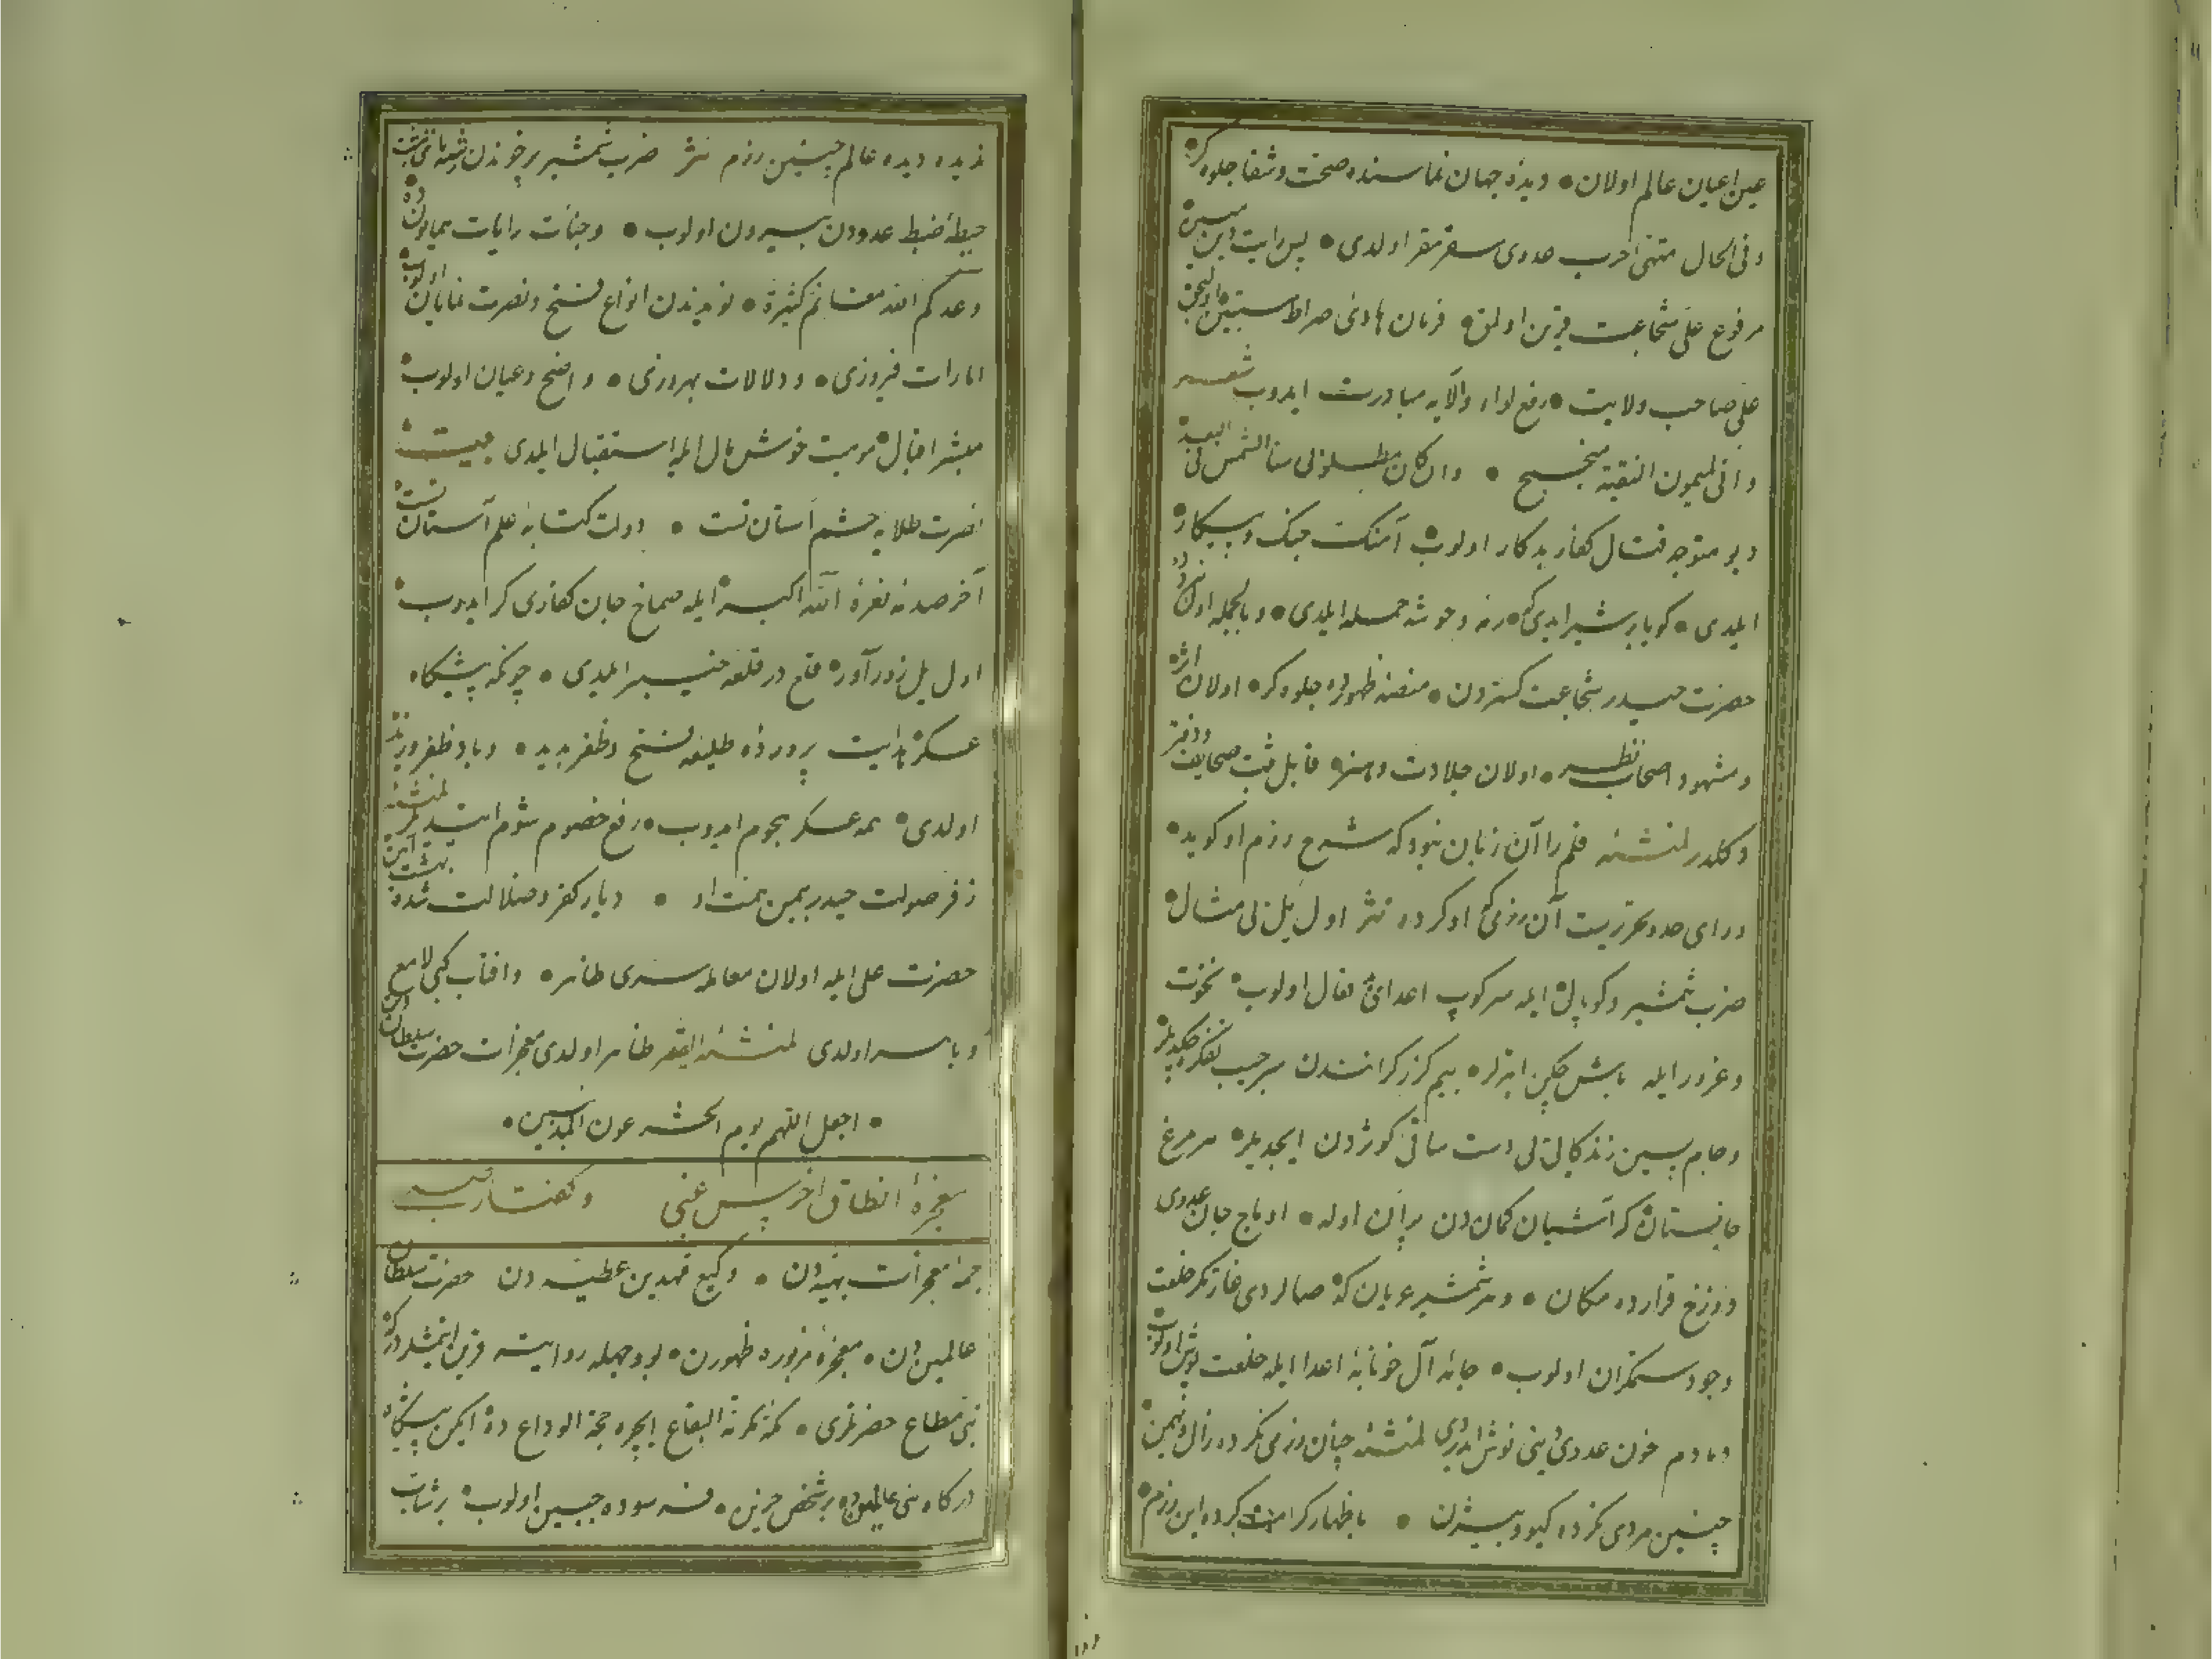 عین اعیان عالم اولان دیدۀ جهان نماسنده صحت و شفا جلوه کر
و فی الحال منتهی احرب صدوی سفر مقر اولدی پس رایت
مرفوع علی شجاعت قرین اولمق فرمان هادئ صراط مستقیم
علی صاحب ولایت رفع لواء والایه مبادرت ایدوب شعر
و انی لمیمون النقیبة منجح وان کان مطلوبی سنا الشمس فی البعد
دیو متوجه قتال کفار بدکار اولوب آهنک جنک و پیکار
ایلدی کویا بر شیر ایدی که رمه وحوشه حمله ایلدی وبالجمله اول
حضرت حیدر شجاعت کستردن منصۀ ظهورده جلوه کر اولان اثر
و مشهود اصحاب نظر اولان جلادت و هنر قابل ثبت صحایف و دفتر
دکلدر لمنشئه قلم را آن زبان نبود که شرح رزم او کوید
ورای حد تحریرست آن رزمی که او کرده نثر اول یل بی مثال
ضرب شمشیر و کوپال ایله سرکوب اعدای اولوب نخوت
و غرور ایله باش چکن ابترلر بیم کرز کرانندن سر جیب تفکره چکدیلر
و جام پسین زندکانی لی دست ساقئ کوثردن ایچدیلر هر مرغ
جانستان که آشیان کماندن پران اوله اوماج جان عدوی
دوزخ قرارده مکان و هر شمشیر عریان که غارتکر خلعت
وجود ستمکران اولوب جامۀ آل خونابۀ اعدا ایله خلعت پوش اولوب
دمادم خون عدوی دینی نوش ایدردی لمنشئه چنان رزمی نکرده زال و بهمن
چنین مردی نکرده کیو و بیژن باظهار کرامت کرده این رزم
ندیده دیده عالم چنین رزم نثر ضرب شمشیر
حیطۀ ضبط عدودن بیرون اولوب وجنات رایات همایون
وعدکم الله مغانم کثیرة نویدندن انواع فتح و نصرت نمایان اولوب
امارات فیروزی و دلالات بهروزی واضح و عیان اولوب
مبشر اقبال خوش بال ایله استقبال ایلدی بیت
نصرت طلایه چشم آستان تست دولت کتابۀ علم آستان تست
آخر صدمه نعرۀ الله اکبر ایله صماخ جان کفاری کر ایدوب
اول یل زور آور فتح در قلعه خیبر ایلدی چونکه پیشکاه
عسکر هدایت پرورده طلیعه فتح و ظفر بدید و باد ظفر
اولدی همه عسکر هجوم ایدوب رفع خصوم شوم ایتدیلر لمنشئه
ز فر صولت حیدر بیمن همت او دیار کفر و ضلالت شده بهشت آیین
حضرت علی ایله اولان معامله سری ظاهر و آفتاب کبی لامع
و باهر اولدی لمنشئه الفقیر ظاهر اولدی معجزات حضرت سلطان دین
اجعل اللهم یوم الحشر عون المذنبین
معجزۀ انطاق اخرس غبی و کفتار
جمله معجزات بهیه دن و کیع فهدین عطیه دن حضرت سلطان
عالمین دن معجزۀ مزبوره ظهورن بو وجهله روایت قرین ایتمشلردر که
نبئ مطاع حضرتلری مکه مکرمة البقاع ایچره حجة الوداع ده ایکن پیشکاه
درکاه نبی عالمیانده بر شخص حزین فرسوده جبین اولوب بر شاب